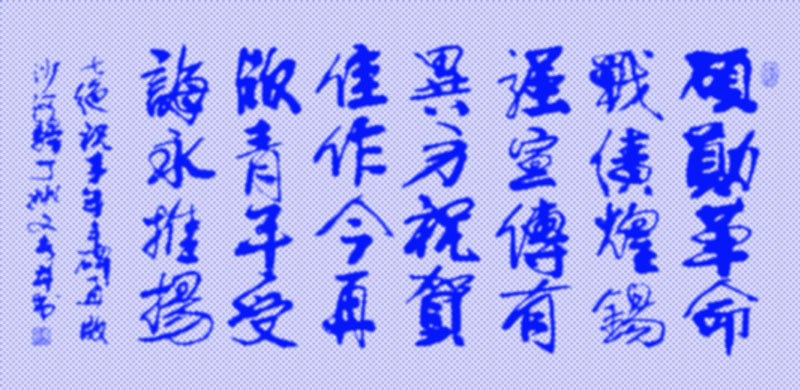 碩勛革命
戰績煌錫
謹宣傳有
異方祝賀
佳作今再
版青年受
誨永推揚
七絕祝 再版
沙河